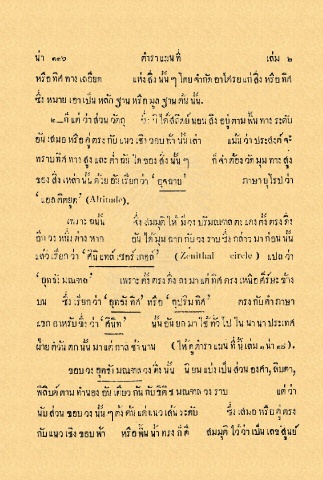 น่า ๑๙๖ ตำราแผนที่ เล่ม ๒
หรือทิศทางเฉลียด แห่งสิ่งนั้นๆ โดยจำกัดอาไศรยแก่สิ่งหรือทิศ
ซึ่งหมายเอาเป็นหลักฐานหรือมูลฐานต้นนั้น.
๒ _ ก็แต่ว่าส่วนวัดถุ ซึ่งมิได้สถิตย์นอนสิ่งอยู่ตามพื้นทางระดับ
อันเสมอหรือคู่ตรงกับแนวเชิงขอบฟ้านั้นเล่า แม้นว่าประสงค์จะ
ทราบทิศทางสูงและต่ำอันใดของสิ่งนั้นๆ ก็จำต้องวัดมุมทางสูง
ของสิ่งเหล่านั้นด้วยอันเรียกว่า ‘อุจฉาย’ ภาษายุโรปว่า
‘แอลติตยุด’ (Altitude).
เพราะฉนั้น ซึ่งสมมุติให้มีวงปริมณฑลตะแคงตั้งตรงดิ่ง
อีกวงหนึ่งต่างหาก อันได้มุมฉากกับวงราบซึ่งกล่าวมาก่อนนั้น
แล้วเรียกว่า ‘ศินีแทล์เซอร์เกอล์’ (Zenithal circle) แปลว่า
‘อุตธัมณฑล’ เพราะตั้งตรงดิ่งถูกมาแต่ทิศตรงเหนือศีร์ษะข้าง
บน ซึ่งเรียกว่า ‘อุทธัทิศ’ หรือ ‘อุปริมทิศ’ ตรงกับคำภาษา
แขกอาหรับซึ่งว่า ‘ศินิท’ นั้นอันยกมาใช้ทั่วไปในนานาประเทศ
ฝ่ายตวันตกนั้นมาแต่กาลช้านาน (ให้ดูตำราแผนที่นี้ เล่ม ๑ น่า ๑๘).
ขอบวงอุตธัมณฑลวงดิ่งนั้น นิยมแบ่งเป็นส่วนองศา, ลิบดา,
พิลิบด์ ตามทำนองอันเดียวกันกับขีดขีมณฑลวงราบ แต่ว่า
นับส่วนขอบวงนั้นๆ ตั้งต้นแต่แนวเส้นระดับ ซึ่งเสมอหรือคู่ตรง
กับแนวเชิงขอบฟ้า หรือพื้นน้ำทรงก็ดี สมมุติไว้ว่าเป็นเลขสูนย์